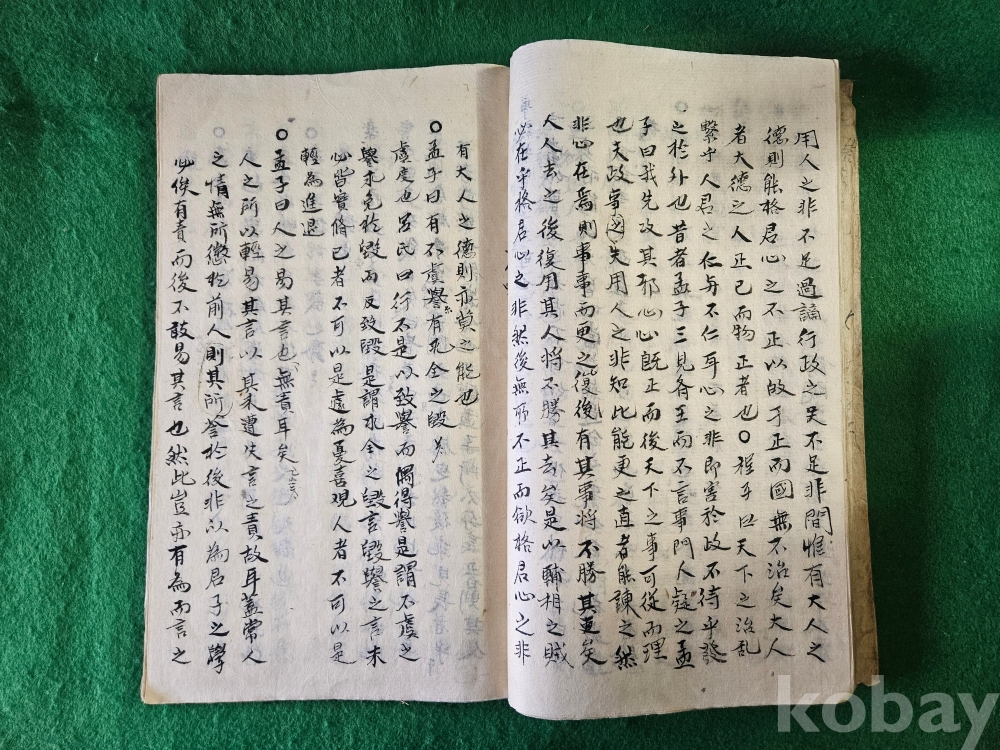 用人之非不足過謫行政之失不足非間惟有大人之
德則能格君心之不正以故于正而國無不治矣大人
者大德之人正己而物正者也○程子曰天下之治乱
繫乎人君之仁与不仁耳心之非即害於政不待乎發
之於外也昔者孟子三見齊王而不言事門人疑之孟
子曰我先攻其邪心心既正而後天下之事可從而理
也夫政事之失用人之非知此能更之直者能諫之然
非心在焉則事事而更之後復有其事將不勝其更矣
人人去之後復用其人將不勝其去矣是以輔相之賊
必在乎格君心之非然後無所不正而欲格君心之非
有大人之德則亦莫之能也
○孟子曰有不虞譽有求全之毀
虞度也呂氏曰行不是以致譽而偶得譽是謂不虞之
譽求免於毀而反致毀是謂求全之毀言毀譽之言未
必皆實脩己者不可以是處為憂喜觀人者不可以是
輕為進退
○孟子曰人之易其言也無責耳矣
人之所以輕易其言以其未遭失言之責故耳蓋常人
之情無所懲於前人則其所於後非以為君子之學
必俟有責而後不敢易其言也然此豈亦有為而言之
kobay